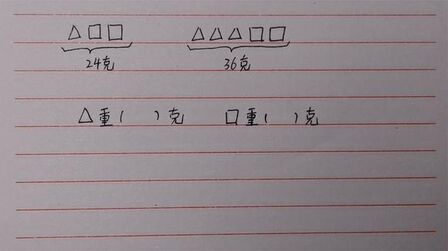 △□□ △△△□□
24克 36克
△重( )克 □重( )克